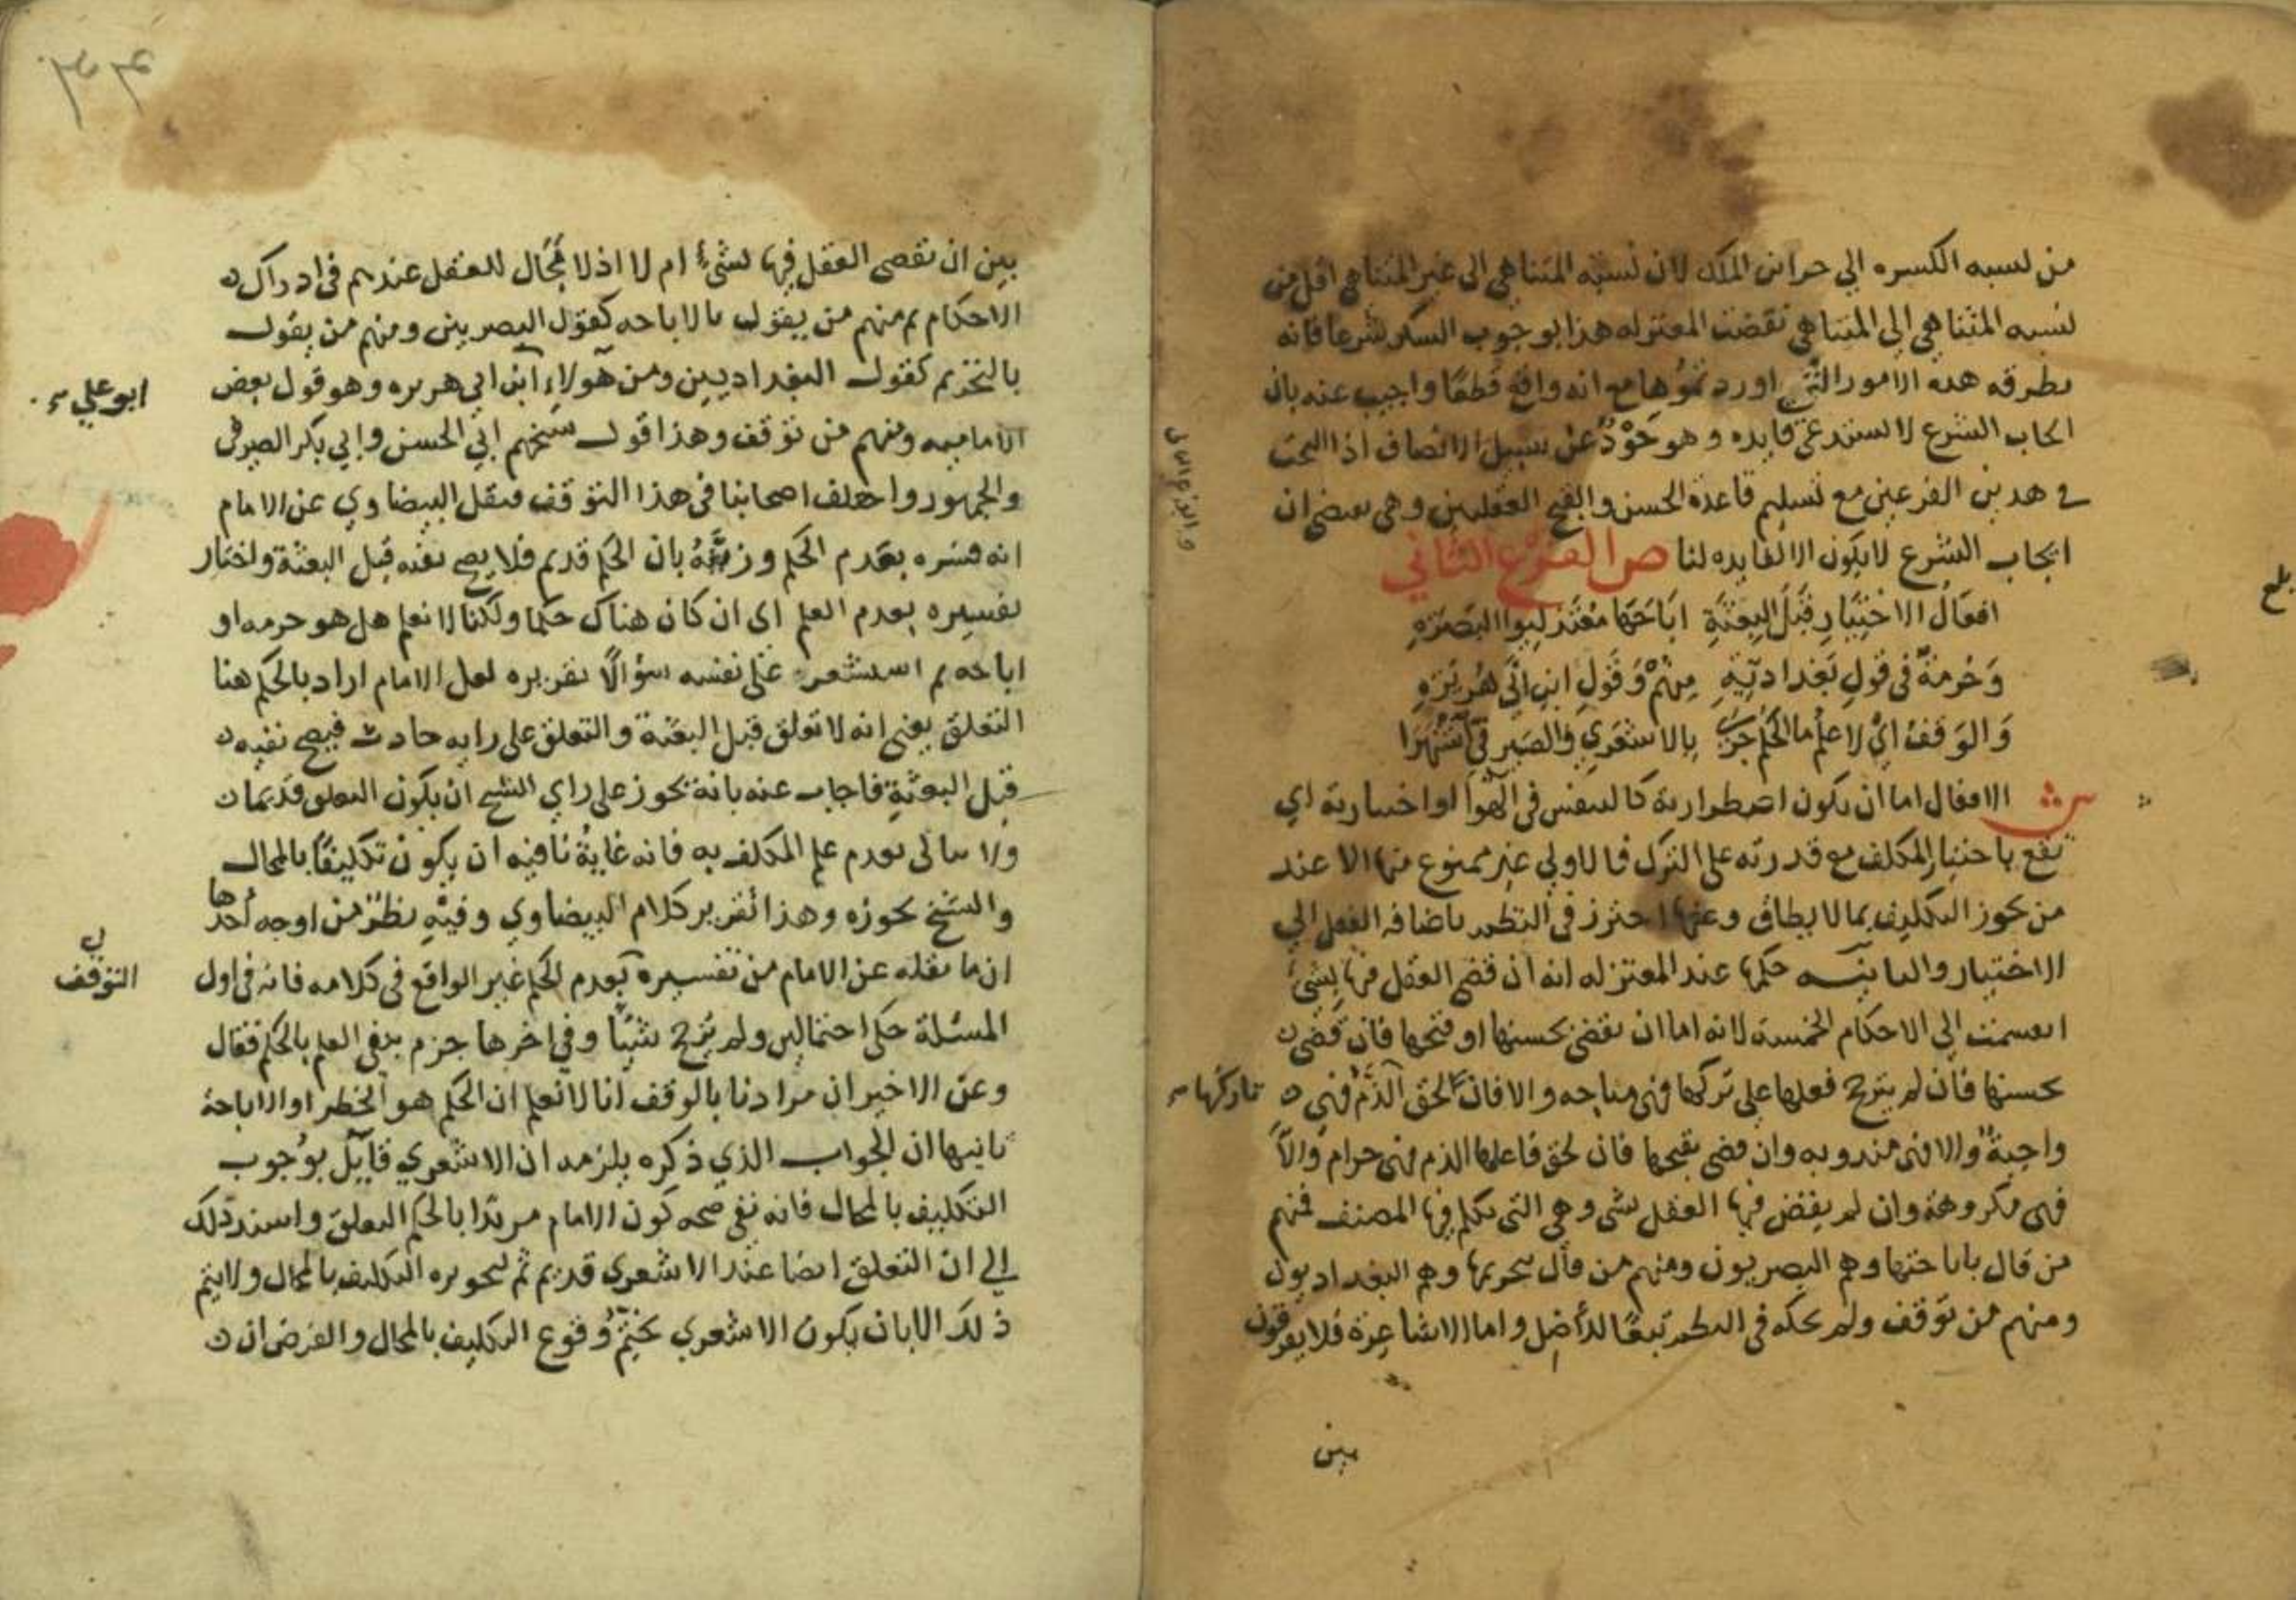 من نسبه الكسره الي خزاين الملك لان نسبه المتناهي الى غير المتناهي اقل من
نسبه المتناهي الي المتناهي نقضت المعتزله هذا بوجوب الشكر شرعا فانه
يطرقه هذه الامور التي اوردتموها مع انه واقع قطعا واجيب عنه بان
ايجاب الشرع لا يستدعي فايده وهو حَوْدٌ عن سبيل الانصاف اذ البحث
في هذين الفرعين مع تسليم قاعدة الحسن والقبح العقليين وهي تقتضي ان
ايجاب الشرع لا يكون الا لفايده لنا ص الفرع الثاني
افعال الاختيار قبل البعثة اباحها معتزليوا البصره
وحُرمةٌ في قول بغداديّيه منهم وقول ابن ابي هريره
والوقف اي لا علم ما الحكم جرى بالاشعري والصيرفي اشتهرا
ش الافعال اما ان تكون اضطرارية كالتنفس في الهوا او اختيارية اي
تقع باختيار المكلف مع قدرته على الترك فالاولي غير ممنوع منها الا عند
من يجوز التكليف بما لا يطاق وعنها احترز في النظم باضافه الفعل الي
الاختيار والثانيه حكمها عند المعتزله انه ان قضى العقل فيها بشئ
انقسمت الي الاحكام الخمسة لانه اما ان يقضي بحسنها او قبحها فان قضى
بحسنها فان لم يترجح فعلها على تركها فهي مباحه والا فان لحق الذم فهي
تاركها
واجبة والا فهي مندوبه وان قضى بقبحها فان لحق فاعلها الذم فهي حرام والا
فهي مكروهة وان لم يقض فيها العقل بشي وهي التي تكلم فيها المصنف فمنهم
من قال باباحتها وهم البصريون ومنهم من قال بتحريمها وهم البغداديون
ومنهم من توقف ولم يحكه في النظم تبعًا للأصل واما الاشاعرة فلا يفرقون
بين
بلغ
بين ان يقضي العقل فيها بشئ ام لا اذ لا مجال للعقل عندهم في ادراك
الاحكام ثم منهم من يقول بالاباحه كقول البصريين ومنهم من يقول
بالتحريم كقول البغداديين ومن هولاء ابن ابي هريره وهو قول بعض
ابو علي
الاماميه ومنهم من توقف وهذا قول شيخهم ابي الحسن وابي بكر الصيرفي
والجمهور واختلف اصحابنا في هذا التوقف فنقل البيضاوي عن الامام
انه فسره بعدم الحكم وزيّفه بان الحكم قديم فلا يصح نفيه قبل البعثة واختار
تفسيره بعدم العلم اي ان كان هناك حكما ولكنا لا نعلم هل هو حرمه او
اباحه ثم استشعر على نفسه سؤالًا تقريره لعل الامام اراد بالحكم هنا
التعلق يعني انه لا تعلق قبل البعثة والتعلق على رايه حادث فيصح نفيه
قبل البعثة فاجاب عنه بانه يجوز على راي الشيخ ان يكون التعلق قديما
ولا يبالي بعدم علم المكلف به فانه غاية ما فيه ان يكون تكليفًا بالمحال
والشيخ يجوزه وهذا تقرير كلام البيضاوي وفيه نظر من اوجه احدها
ان ما نقله عن الامام من تفسيره بعدم الحكم غير الواقع في كلامه فانه في اول
التوقف
المسئلة حكى احتمالين ولم يرجح شيئًا وفي اخرها جزم بنفي العلم بالحكم فقال
وعن الاخير ان مرادنا بالوقف انا لا نعلم ان الحكم هو الحظر او الاباحة
ثانيها ان الجواب الذي ذكره يلزمه ان الاشعري قايل بوجوب
التكليف بالمحال فانه نفى صحه كون الامام مريدًا بالحكم التعلق واسند ذلك
الي ان التعلق ايضا عند الاشعري قديم ثم لتجويزه التكليف بالمحال ولا يتم
ذلك الا بان يكون الاشعري يحتّم وقوع التكليف بالمحال والفرض ان